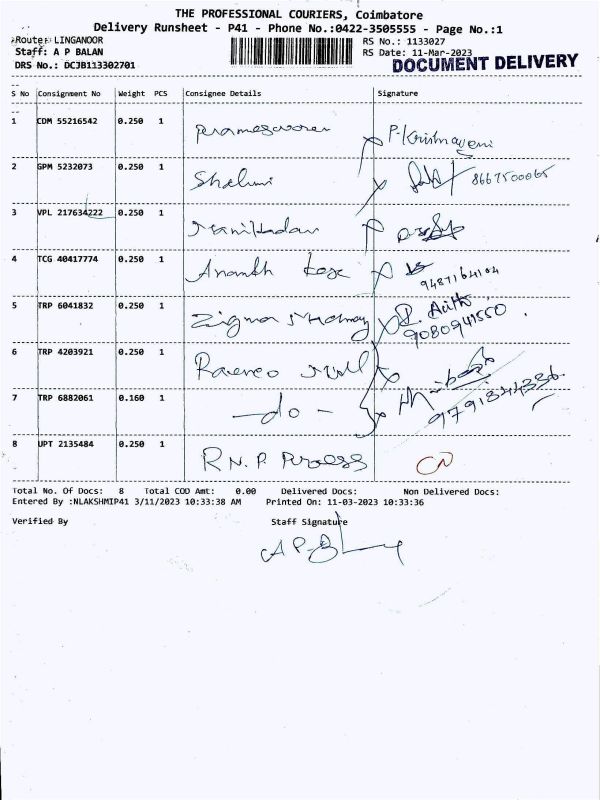 THE PROFESSIONAL COURIERS, Coimbatore
Delivery Runsheet - P41 - Phone No.:0422-3505555 - Page No.:1
Route: LINGANOOR
RS No.: 1133027
Staff: A P BALAN
RS Date: 11-Mar-2023
DRS No.: DCJB113302701
DOCUMENT DELIVERY
S No Consignment No Weight PCS Consignee Details Signature
1 CDM 55216542 0.250 1 P. Krishnaveni
2 GPM 5232073 0.250 1 Shalini 8667500065
3 VPL 217634222 0.250 1 Manikandan
4 TCG 40417774 0.250 1 Ananth 9487164104
5 TRP 6041832 0.250 1 Zigma 9080941550
6 TRP 4203921 0.250 1 Mill
7 TRP 6882061 0.160 1 —do— 9791844336
8 UPT 2135484 0.250 1 R.N.P. Process CN
Total No. Of Docs: 8 Total COD Amt: 0.00 Delivered Docs: Non Delivered Docs:
Entered By :NLAKSHMIP41 3/11/2023 10:33:38 AM Printed On: 11-03-2023 10:33:36
Verified By Staff Signature